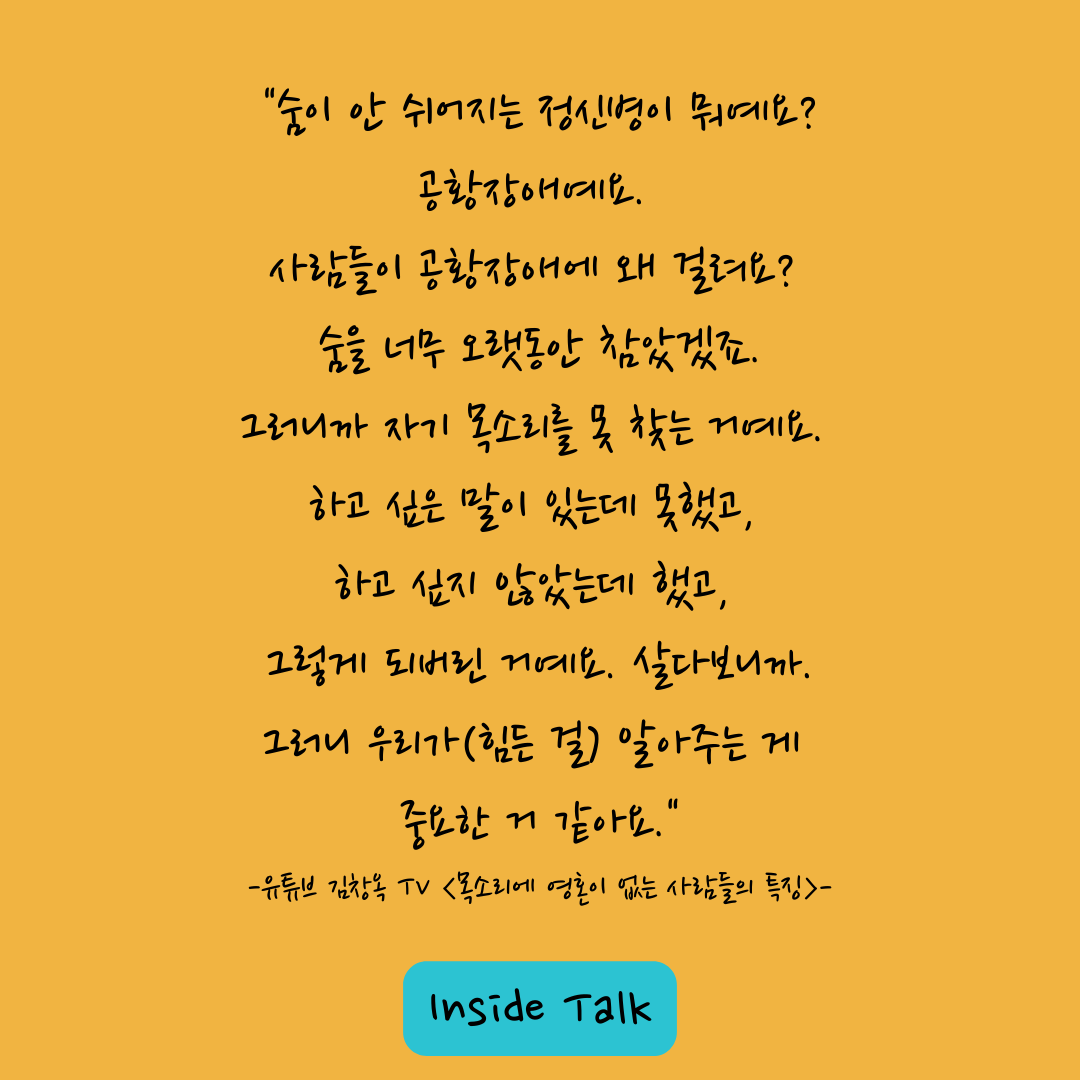 "숨이 안 쉬어지는 정신병이 뭐예요?
공황장애예요.
사람들이 공황장애에 왜 걸려요?
숨을 너무 오랫동안 참았겠죠.
그러니까 자기 목소리를 못 찾는 거예요.
하고 싶은 말이 있는데 못했고,
하고 싶지 않았는데 했고,
그렇게 되버린 거예요. 살다보니까.
그러니 우리가(힘든 걸) 알아주는 게
중요한 거 같아요."
-유튜브 김창옥 TV <목소리에 영혼이 없는 사람들의 특징>-
Inside Talk